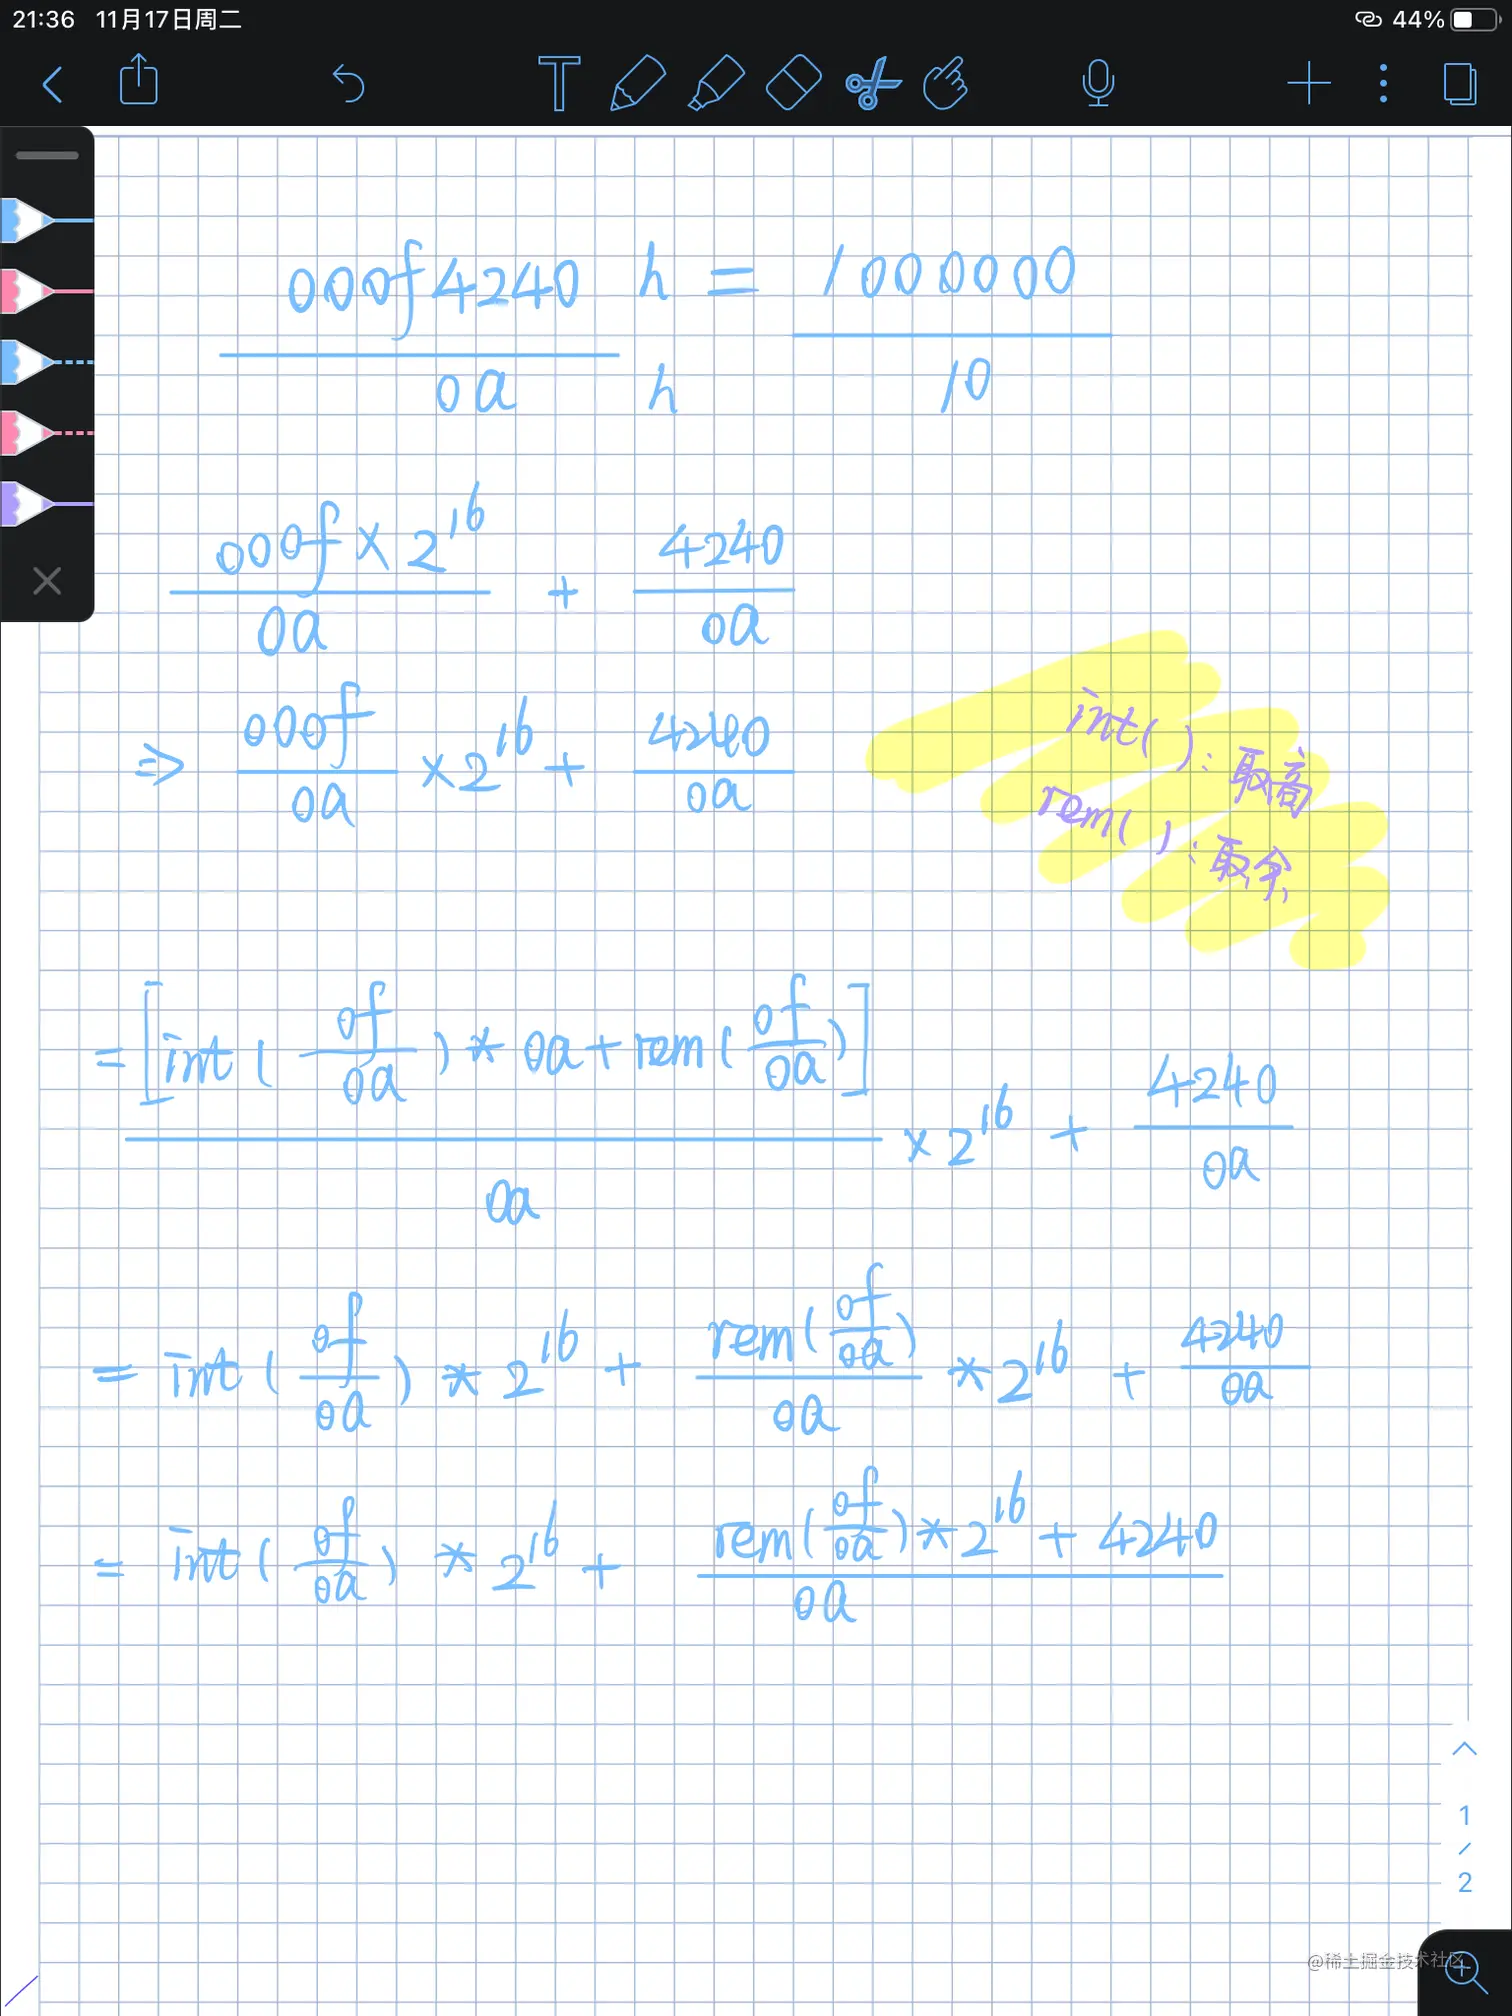 21:36 11月17日周二 44%
000f4240 h = 1000000
0a h 10
000f × 2^16 + 4240
0a 0a
⇒ 000f × 2^16 + 4240
0a 0a
int( ): 取高
rem( ): 取余
= [int( 0f/0a ) * 0a + rem( 0f/0a )] / 0a × 2^16 + 4240/0a
= int( 0f/0a ) * 2^16 + rem( 0f/0a )/0a * 2^16 + 4240/0a
= int( 0f/0a ) * 2^16 + rem( 0f/0a ) * 2^16 + 4240
0a
1
/
2
@稀土掘金技术社区